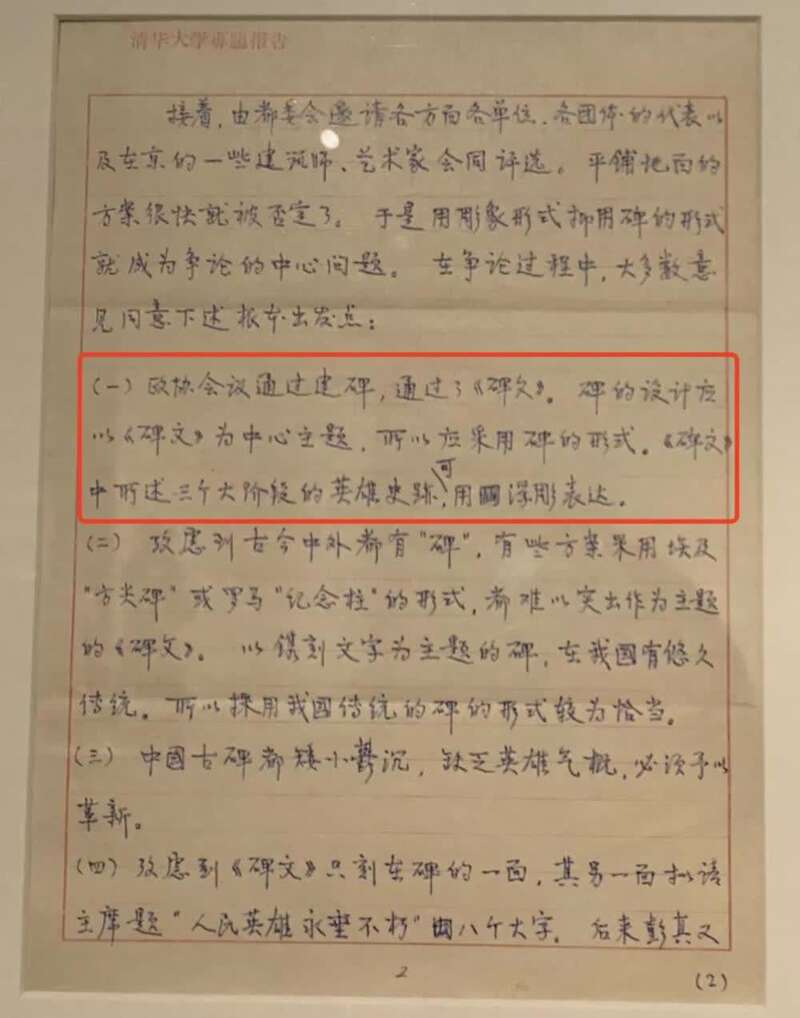 清华大学专题报告
接着，由都委会邀请各方面各单位、各团体的代表以
及在京的一些建筑师、艺术家会同评选。平铺地面的
方案很快就被否定了。于是用彫象形式抑用碑的形式
就成为争论的中心问题。在争论过程中，大多数意
见同意下述根本出发点：
(一) 政协会议通过建碑，通过了《碑文》。碑的设计应
以《碑文》为中心主题，所以应采用碑的形式。《碑文》
中所述三个大阶段的英雄史跡，可用浮彫表达。
(二) 考虑到古今中外都有“碑”，有些方案采用埃及
“方尖碑”或罗马“纪念柱”的形式，都难以突出作为主题
的《碑文》。以镌刻文字为主题的碑，在我國有悠久
传统。所以採用我國传统的碑的形式较为恰当。
(三) 中國古碑都矮小鬱沉，缺乏英雄气概，必须予以
革新。
(四) 考虑到《碑文》只刻在碑的一面，其另一面拟请
主席题“人民英雄永垂不朽”八个大字。后来彭真又
2
(2)